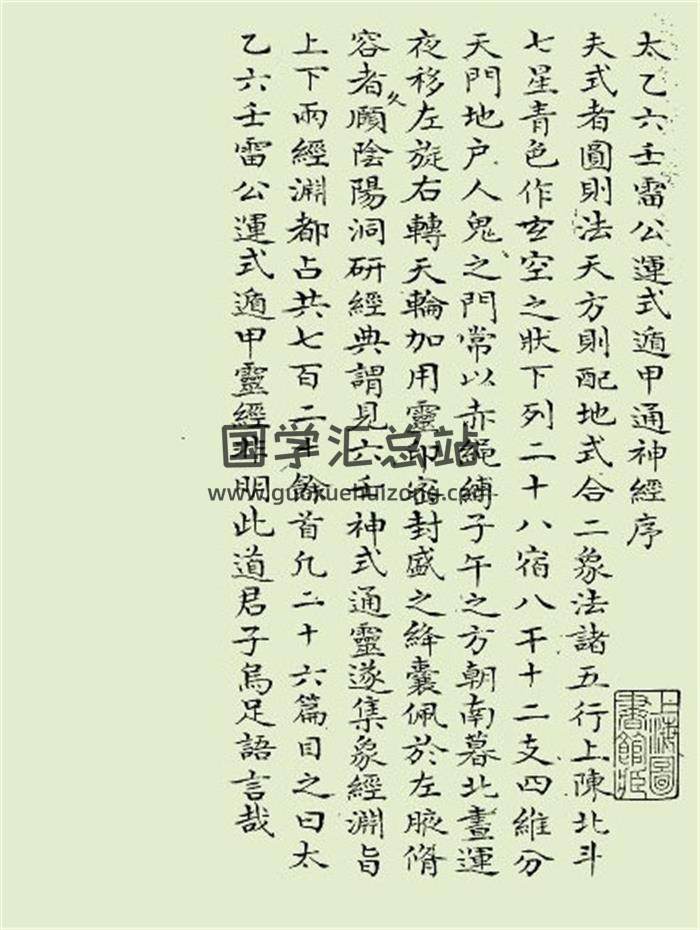 太乙六壬雷公運式遁甲通神經序
夫式者圓則法天方則配地式合二象法諸五行上陳北斗
七星青色作玄空之狀下列二十八宿八干十二支四維分
天門地户人鬼之門常以赤繩縛子午之方朝南暮北晝運
夜移左旋右轉天輪加用靈印密封盛之絳囊佩於左腋脩
容者久願陰陽洞研經典謂見六壬神式通靈遂集象經淵旨
上下兩經淵都占共七百二十餘首凡二十六篇目之曰太
乙六壬雷公運式遁甲靈經非明此道君子烏足語言哉
上海圖書館藏
国学汇总站
www.guoxuehuizong.com